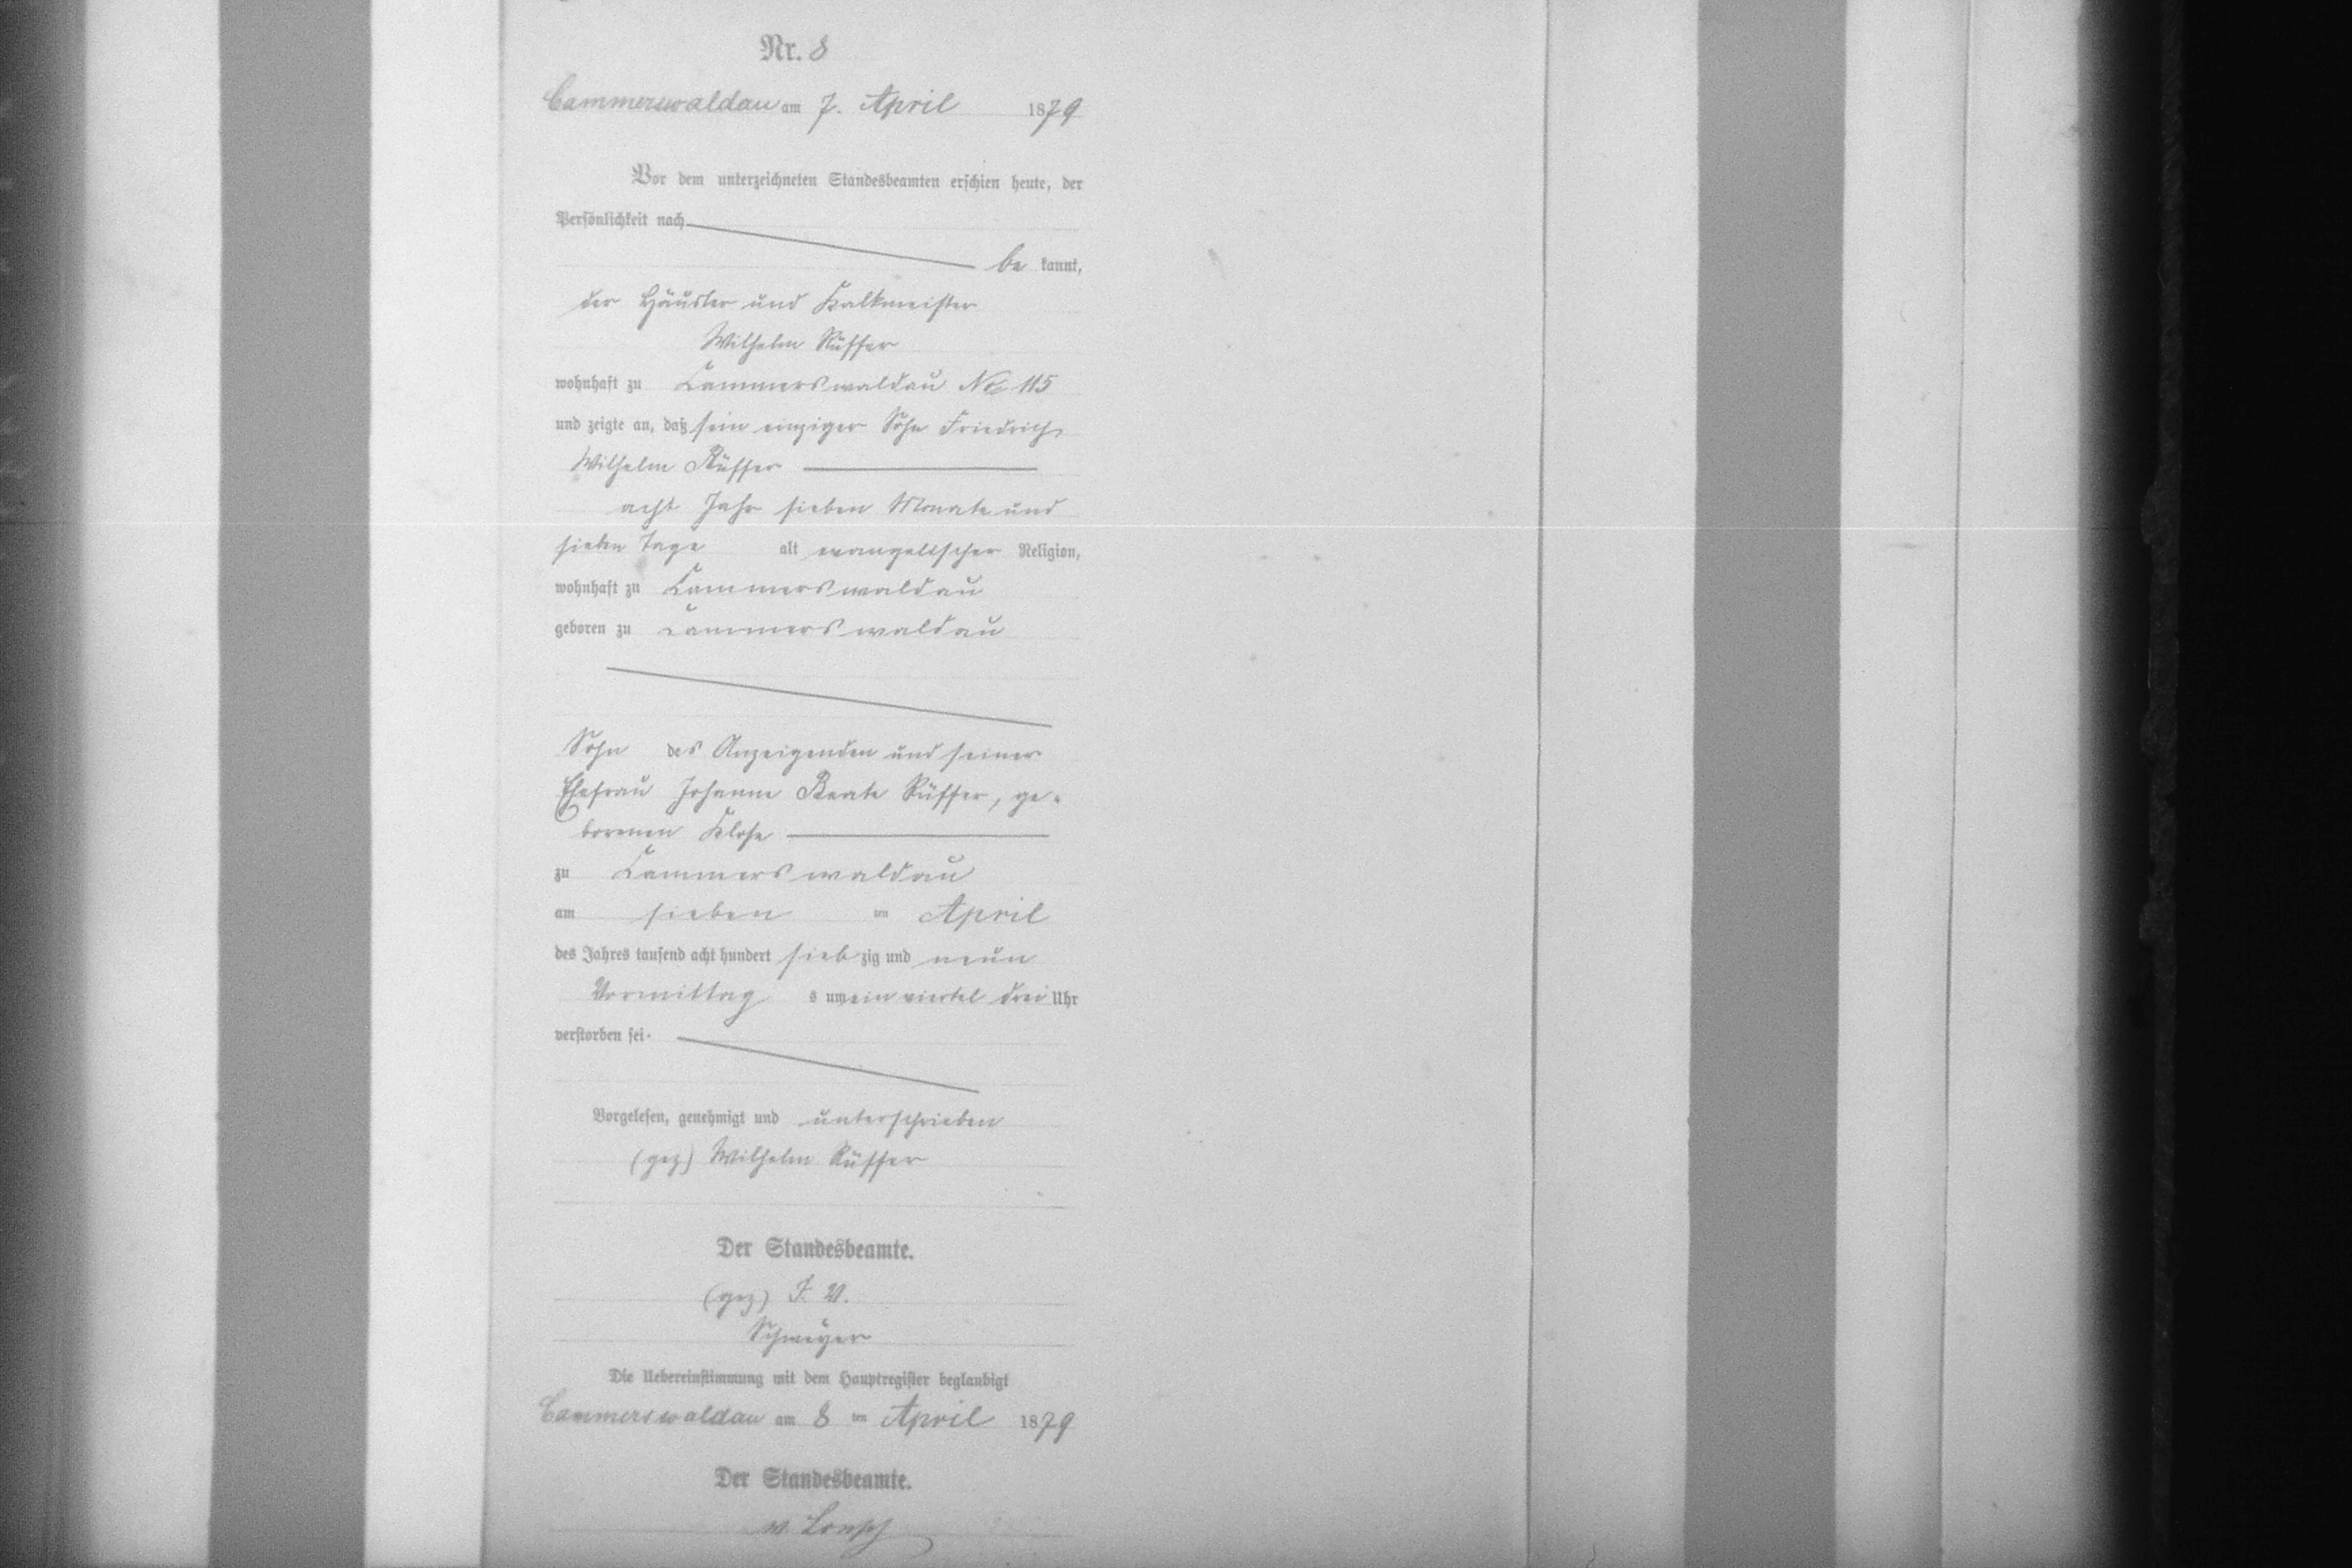 Nr. 8
Cammerswaldau am 7. April 1879
Vor dem unterzeichneten Standesbeamten erschien heute, der
Persönlichkeit nach
be kannt,
der Häusler und Kalkmeister
Wilhelm Rüffer
wohnhaft zu Cammerswaldau No 115
und zeigte an, daß sein einziger Sohn Friedrich
Wilhelm Rüffer
acht Jahr sieben Monate und
sieben Tage alt evangelischer Religion,
wohnhaft zu Cammerswaldau
geboren zu Cammerswaldau
Sohn des Anzeigenden und seiner
Ehefrau Johanne Beate Rüffer, ge-
borenen Klose
zu Cammerswaldau
am sieben ten April
des Jahres tausend acht hundert sieb zig und neun
Vormittag s um ein viertel drei Uhr
verstorben sei.
Vorgelesen, genehmigt und unterschrieben
(gez) Wilhelm Rüffer
Der Standesbeamte.
(gez) I. V.
Schmeyer
Die Uebereinstimmung mit dem Hauptregister beglaubigt
Cammerswaldau am 8 ten April 1879
Der Standesbeamte.